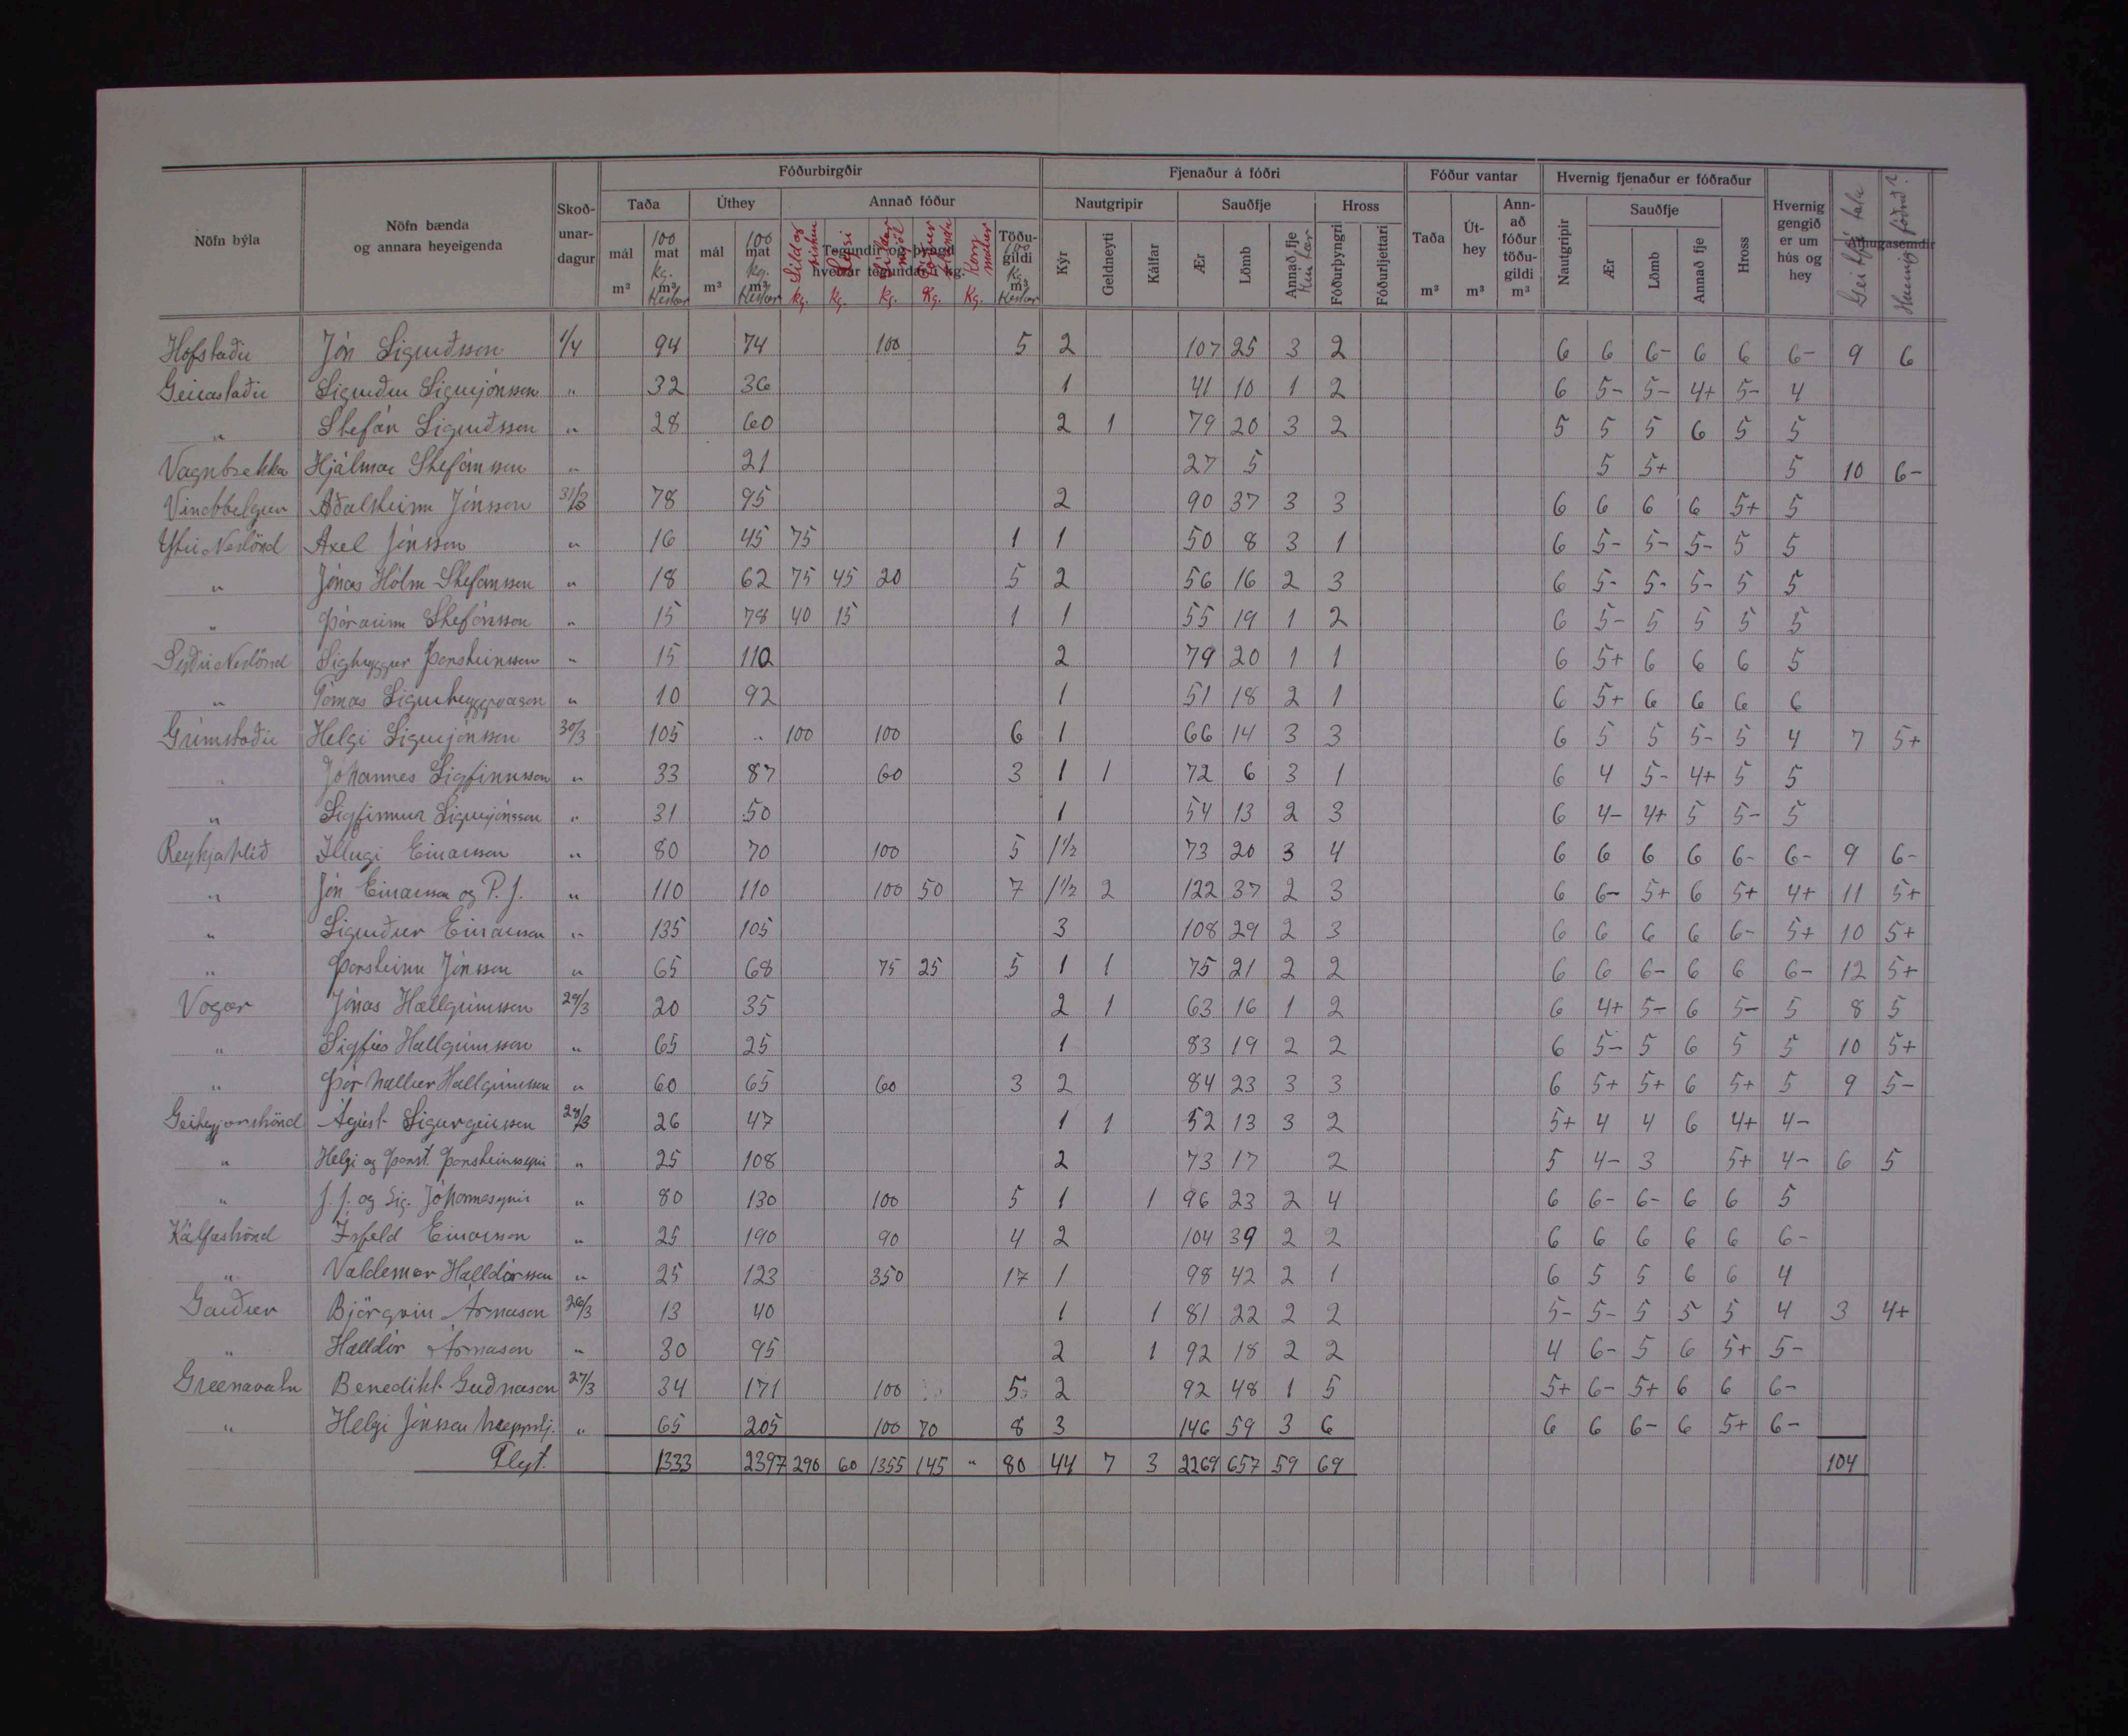 Nöfn býla | Nöfn bænda og annara heyeigenda | Skoð-unar-dagur | Fóðurbirgðir | Fjenaður á fóðri | Fóður vantar | Hvernig fjenaður er fóðraður | Hvernig gengið er um hús og hey | Athugasemdir
Taða | Úthey | Annað fóður | Nautgripir | Sauðfje | Hross | Taða m³ | Út-hey m³ | Ann-að fóður töðu-gildi m³ | Nautgripir | Sauðfje | Hross | Geitfjá tala | Hvernig fóðrað?
mál m³ | 100 mat kg. m³ Hestar | mál m³ | 100 mat kg. m³ Hestar | Tegundir og þyngd hverrar tegundar í kg. | Síld og kg. | Lýsi kg. | Síldar mjöl kg. | Kg. | Korn matur Kg. | Töðu-gildi 100 kg. m³ Hestar | Kýr | Geldneyti | Kálfar | Ær | Lömb | Annað fje Hrútar | Fóðurþyngri | Fóðurljettari | Ær | Lömb | Annað fje
Hofstaðir | Jón Sigurðsson | 1/4 | 94 | 74 | 100 | 5 | 2 | 107 | 25 | 3 | 2 | 6 | 6 | 6- | 6 | 6 | 6- | 9 | 6
Geirastaðir | Sigurður Sigurjónsson | " | 32 | 36 | 1 | 41 | 10 | 1 | 2 | 6 | 5- | 5- | 4+ | 5- | 4
" | Stefán Sigurðsson | " | 28 | 60 | 2 | 1 | 79 | 20 | 3 | 2 | 5 | 5 | 5 | 6 | 5 | 5
Vagnbrekka | Hjálmar Stefánsson | " | 21 | 27 | 5 | 5 | 5+ | 5 | 10 | 6-
Vindbelgur | Aðalsteinn Jónsson | 31/3 | 78 | 95 | 2 | 90 | 37 | 3 | 3 | 6 | 6 | 6 | 6 | 5+ | 5
Ytri Neslönd | Axel Jónsson | " | 16 | 45 | 75 | 1 | 1 | 50 | 8 | 3 | 1 | 6 | 5- | 5- | 5- | 5 | 5
" | Jónas Hólm Stefánsson | " | 18 | 62 | 75 | 45 | 20 | 5 | 2 | 56 | 16 | 2 | 3 | 6 | 5- | 5- | 5- | 5 | 5
" | Þórarinn Stefánsson | " | 15 | 78 | 40 | 15 | 1 | 1 | 55 | 19 | 1 | 2 | 6 | 5- | 5 | 5 | 5 | 5
Syðri Neslönd | Sigtryggur Þorsteinsson | " | 15 | 110 | 2 | 79 | 20 | 1 | 1 | 6 | 5+ | 6 | 6 | 6 | 5
" | Tómas Sigurtryggvason | " | 10 | 92 | 1 | 51 | 18 | 2 | 1 | 6 | 5+ | 6 | 6 | 6 | 6
Grímstaðir | Helgi Sigurjónsson | 30/3 | 105 | " | 100 | 100 | 6 | 1 | 66 | 14 | 3 | 3 | 6 | 5 | 5 | 5- | 5 | 4 | 7 | 5+
" | Jóhannes Sigfinnsson | " | 33 | 87 | 60 | 3 | 1 | 1 | 72 | 6 | 3 | 1 | 6 | 4 | 5- | 4+ | 5 | 5
" | Sigfinnur Sigurjónsson | " | 31 | 50 | 1 | 54 | 13 | 2 | 3 | 6 | 4- | 4+ | 5 | 5- | 5
Reykjahlíð | Illugi Einarsson | " | 80 | 70 | 100 | 5 | 1½ | 73 | 20 | 3 | 4 | 6 | 6 | 6 | 6 | 6- | 6- | 9 | 6-
" | Jón Einarsson og P. J. | " | 110 | 110 | 100 | 50 | 7 | 1½ | 2 | 122 | 37 | 2 | 3 | 6 | 6- | 5+ | 6 | 5+ | 4+ | 11 | 5+
" | Sigurður Einarsson | " | 135 | 105 | 3 | 108 | 29 | 2 | 3 | 6 | 6 | 6 | 6 | 6- | 5+ | 10 | 5+
" | Þorsteinn Jónsson | " | 65 | 68 | 75 | 25 | 5 | 1 | 1 | 75 | 21 | 2 | 2 | 6 | 6 | 6- | 6 | 6 | 6- | 12 | 5+
Vogar | Jónas Hallgrímsson | 29/3 | 20 | 35 | 2 | 1 | 63 | 16 | 1 | 2 | 6 | 4+ | 5- | 6 | 5- | 5 | 8 | 5
" | Sigfús Hallgrímsson | " | 65 | 25 | 1 | 83 | 19 | 2 | 2 | 6 | 5- | 5 | 6 | 5 | 5 | 10 | 5+
" | Þórhallur Hallgrímsson | " | 60 | 65 | 60 | 3 | 2 | 84 | 23 | 3 | 3 | 6 | 5+ | 5+ | 6 | 5+ | 5 | 9 | 5-
Geiteyjarströnd | Ágúst Sigurgeirsson | 28/3 | 26 | 47 | 1 | 1 | 52 | 13 | 3 | 2 | 5+ | 4 | 4 | 6 | 4+ | 4-
" | Helgi og Þorst. Þorsteinssynir | " | 25 | 108 | 2 | 73 | 17 | 2 | 5 | 4- | 3 | 5+ | 4- | 6 | 5
" | J. J. og Sig. Jóhannesynir | " | 80 | 130 | 100 | 5 | 1 | 1 | 96 | 23 | 2 | 4 | 6 | 6- | 6- | 6 | 6 | 5
Kálfaströnd | Ísfeld Einarsson | " | 25 | 190 | 90 | 4 | 2 | 104 | 39 | 2 | 2 | 6 | 6 | 6 | 6 | 6 | 6-
" | Valdemar Halldórsson | " | 25 | 123 | 350 | 17 | 1 | 98 | 42 | 2 | 1 | 6 | 5 | 5 | 6 | 6 | 4
Garður | Björgvin Árnason | 26/3 | 13 | 40 | 1 | 1 | 81 | 22 | 2 | 2 | 5- | 5- | 5 | 5 | 5 | 4 | 3 | 4+
" | Halldór Árnason | " | 30 | 95 | 2 | 1 | 92 | 18 | 2 | 2 | 4 | 6- | 5 | 6 | 5+ | 5-
Grænavatn | Benedikt Guðnason | 27/3 | 34 | 171 | 100 | 5 | 2 | 92 | 48 | 1 | 5 | 5+ | 6- | 5+ | 6 | 6 | 6-
" | Helgi Jónsson hreppstj. | " | 65 | 205 | 100 | 70 | 8 | 3 | 146 | 59 | 3 | 6 | 6 | 6 | 6- | 6 | 5+ | 6-
Flyt. | 1333 | 2397 | 290 | 60 | 1355 | 145 | " | 80 | 44 | 7 | 3 | 2269 | 657 | 59 | 69 | 104